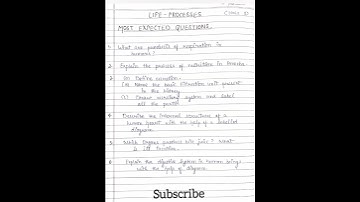 LIFE-PROCESSES
(Class X)
MOST EXPECTED QUESTIONS
1 What are products of respiration in
humans?
2 Explain the process of nutrition in Amoeba
3 (a) Define excretion
(b) Name the basic filtration unit present
in the kidney
(c) Draw excretory system and label
all the parts
4 Describe the internal structure of a
human heart with the help of a labelled
diagram.
5 Which organ produces bile juice? What
is its function
6 Explain the digestive system in human beings
with the help of diagram.
Subscribe